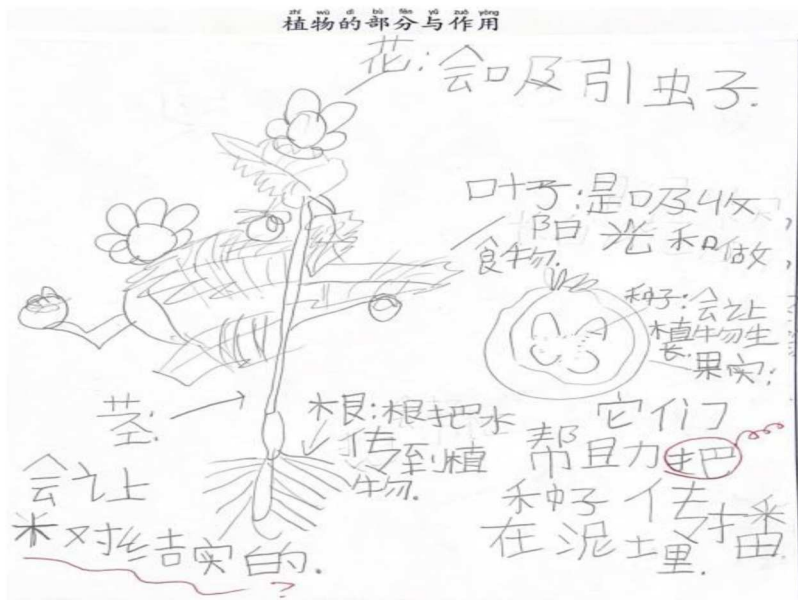 zhí wù dì bù fèn yǔ zuò yòng
植物的部分与作用
花：会吸引虫子.
叶子：是吸收
阳光和做
食物.
种子：会让
植物生
长.
果实：
它们
帮助把
种子传播
在泥土里.
茎：
会让
米对结实的.
?
根：根把水
传到植
物.